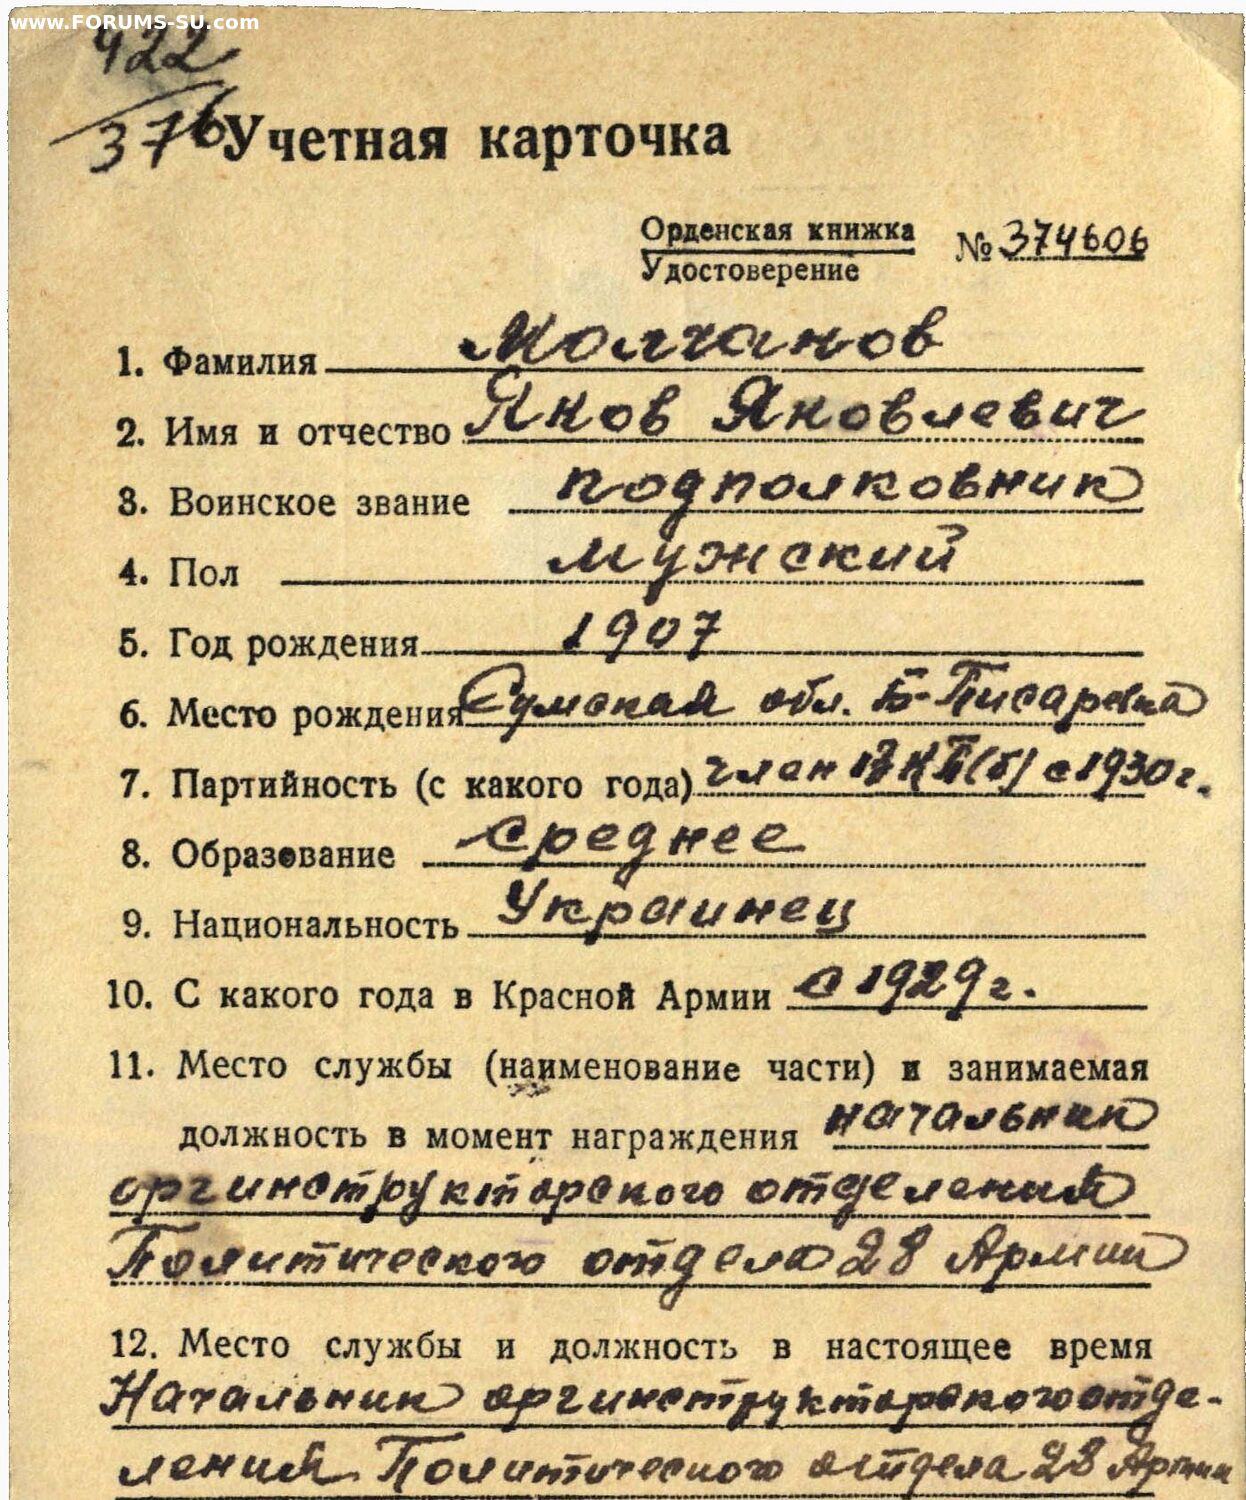 www.FORUMS-SU.com
422
376
Учетная карточка
Орденская книжка
Удостоверение
№ 374606
1. Фамилия Молчанов
2. Имя и отчество Яков Яковлевич
3. Воинское звание подполковник
4. Пол мужский
5. Год рождения 1907
6. Место рождения Сумская обл. Б-Писаревка
7. Партийность (с какого года) член ВКП(б) с 1930 г.
8. Образование среднее
9. Национальность Украинец
10. С какого года в Красной Армии с 1929 г.
11. Место службы (наименование части) и занимаемая
должность в момент награждения начальник
оргинструкторского отделения
Политического отдела 28 Армии
12. Место службы и должность в настоящее время
Начальник оргинструкторского отде-
ления Политического отдела 28 Армии